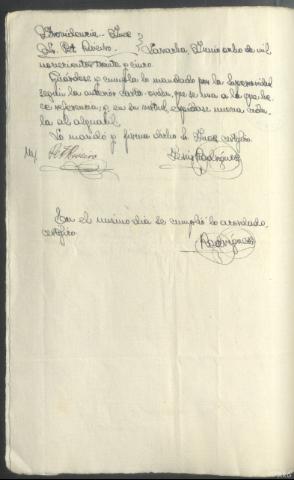 Providencia - Juez
Sr. Pet Riveiro. } Laracha Junio ocho de mil
novecientos treinta y cinco.
Guárdese y cumpla lo mandado por la Superioridad
según la anterior carta-orden, que se una a la que ha-
ce referencia; y en su virtud expídase nueva cédu-
la al alguacil.
Lo mandó y firma dicho Sr. Juez, certifico.
Riveiro Jesús Rodríguez
En el mismo día se cumplió lo acordado,
certifico
Rodríguez